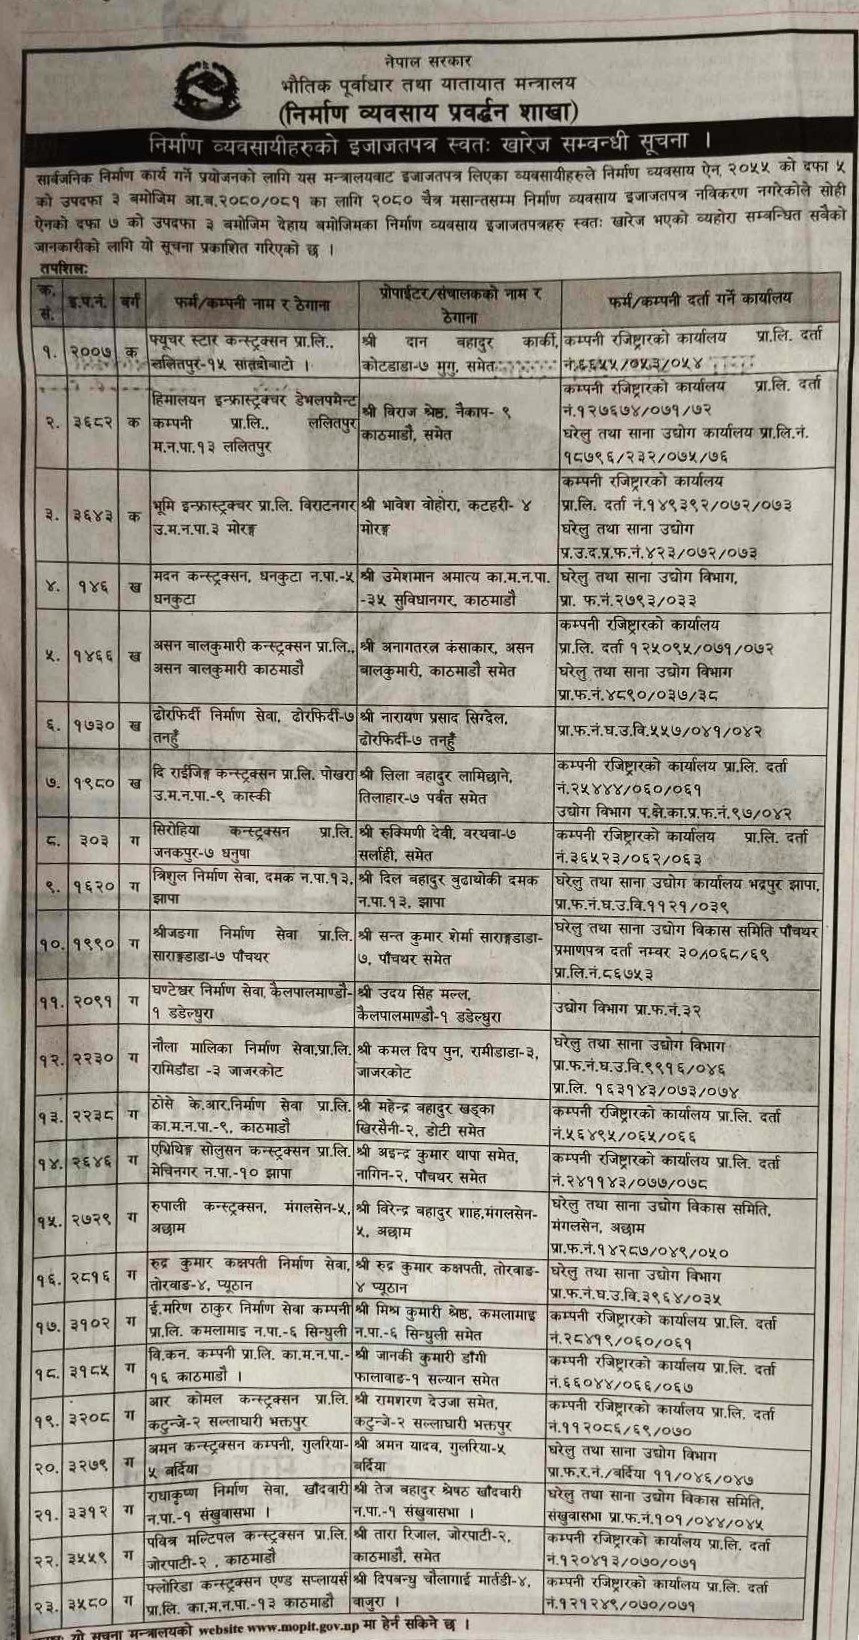 नेपाल सरकार
भौतिक पूर्वाधार तथा यातायात मन्त्रालय
(निर्माण व्यवसाय प्रवर्द्धन शाखा)
निर्माण व्यवसायीहरुको इजाजतपत्र स्वतः खारेज सम्वन्धी सूचना ।
सार्वजनिक निर्माण कार्य गर्ने प्रयोजनको लागि यस मन्त्रालयवाट इजाजतपत्र लिएका व्यवसायीहरुले निर्माण व्यवसाय ऐन, २०५५ को दफा ५
को उपदफा ३ बमोजिम आ.ब.२०८०/०८१ का लागि २०८० चैत्र मसान्तसम्म निर्माण व्यवसाय इजाजतपत्र नविकरण नगरेकोले सोही
ऐनको दफा ७ को उपदफा ३ बमोजिम देहाय बमोजिमका निर्माण व्यवसाय इजाजतपत्रहरु स्वतः खारेज भएको व्यहोरा सम्वन्धित सबैको
जानकारीको लागि यो सूचना प्रकाशित गरिएको छ ।
तपशिलः
क.सं. इ.प.नं. वर्ग फर्म/कम्पनी नाम र ठेगाना प्रोपाईटर/संचालकको नाम र ठेगाना फर्म/कम्पनी दर्ता गर्ने कार्यालय
१. २००७ क फ्यूचर स्टार कन्स्ट्रक्सन प्रा.लि., श्री दान बहादुर कार्की, कम्पनी रजिष्ट्रारको कार्यालय प्रा.लि. दर्ता
ललितपुर-१५ सातदोबाटो । कोटडाडा-७ मुगु, समेत नं.६६५५/०५३/०५४
२. ३६८२ क हिमालयन इन्फ्रास्ट्रक्चर डेभलपमेन्ट कम्पनी प्रा.लि., ललितपुर म.न.पा.१३ ललितपुर श्री विराज श्रेष्ठ, नैकाप- ९ काठमाडौ, समेत कम्पनी रजिष्ट्रारको कार्यालय प्रा.लि. दर्ता
नं.१२७६७४/०७१/७२
घरेलु तथा साना उद्योग कार्यालय प्रा.लि.नं.
१८७९६/२३२/०७५/७६
३. ३६४३ क भूमि इन्फ्रास्ट्रक्चर प्रा.लि. विराटनगर उ.म.न.पा.३ मोरङ्ग श्री भावेश वोहोरा, कटहरी- ४ मोरङ्ग कम्पनी रजिष्ट्रारको कार्यालय
प्रा.लि. दर्ता नं.१४९३९२/०७२/०७३
घरेलु तथा साना उद्योग
प्र.उ.द.प्र.फ.नं.४२३/०७२/०७३
४. १४६ ख मदन कन्स्ट्रक्सन, धनकुटा न.पा.-५ श्री उमेशमान अमात्य का.म.न.पा. घरेलु तथा साना उद्योग विभाग,
धनकुटा -३५ सुविधानगर, काठमाडौ प्रा. फ.नं.२७९३/०३३
५. १४६६ ख असन बालकुमारी कन्स्ट्रक्सन प्रा.लि., असन बालकुमारी काठमाडौ श्री अनागतरत्न कंसाकार, असन बालकुमारी, काठमाडौ समेत कम्पनी रजिष्ट्रारको कार्यालय
प्रा.लि. दर्ता १२५०९५/०७१/०७२
घरेलु तथा साना उद्योग विभाग
प्रा.फ.नं.४८९०/०३७/३८
६. १७३० ख ढोरफिर्दी निर्माण सेवा, ढोरफिर्दी-७ श्री नारायण प्रसाद सिग्देल, प्रा.फ.नं.घ.उ.वि.५५७/०४१/०४२
तनहुँ ढोरफिर्दी-७ तनहुँ
७. १९८० ख दि राईजिङ्ग कन्स्ट्रक्सन प्रा.लि. पोखरा उ.म.न.पा.-९ कास्की श्री लिला बहादुर लामिछाने, तिलाहार-७ पर्वत समेत कम्पनी रजिष्ट्रारको कार्यालय प्रा.लि. दर्ता
नं.२५४४४/०६०/०६१
उद्योग विभाग प.क्षे.का.प्र.फ.नं.९७/०४२
८. ३०३ ग सिरोहिया कन्स्ट्रक्सन प्रा.लि. श्री रुक्मिणी देवी, वरथवा-७ कम्पनी रजिष्ट्रारको कार्यालय प्रा.लि. दर्ता
जनकपुर-७ धनुषा सर्लाही, समेत नं.३६५२३/०६२/०६३
९. १६२० ग त्रिशुल निर्माण सेवा, दमक न.पा.१३, श्री दिल बहादुर बुढाथोकी दमक घरेलु तथा साना उद्योग कार्यालय भद्रपुर झापा,
झापा न.पा.१३, झापा प्रा.फ.नं.घ.उ.वि.११२१/०३९
१०. १९९० ग श्रीजङगा निर्माण सेवा प्रा.लि. साराङ्गडाडा-७ पाँचथर श्री सन्त कुमार शेर्मा साराङ्गडाडा-७, पाँचथर समेत घरेलु तथा साना उद्योग विकास समिति पाँचथर
प्रमाणपत्र दर्ता नम्वर ३०/०६८/६९
प्रा.लि.नं.८६७५३
११. २०९१ ग घण्टेश्वर निर्माण सेवा,कैलपालमाण्डौ- श्री उदय सिंह मल्ल, उद्योग विभाग प्रा.फ.नं.३२
१ डडेल्धुरा कैलपालमाण्डौ-१ डडेल्धुरा
१२. २२३० ग नौला मालिका निर्माण सेवा,प्रा.लि. रामिडाँडा -३ जाजरकोट श्री कमल दिप पुन, रामीडाडा-३, जाजरकोट घरेलु तथा साना उद्योग विभाग
प्रा.फ.नं.घ.उ.वि.९९१६/०४६
प्रा.लि. १६३१४३/०७३/०७४
१३. २२३८ ग ठोसे के.आर.निर्माण सेवा प्रा.लि. श्री महेन्द्र बहादुर खड्का कम्पनी रजिष्ट्रारको कार्यालय प्रा.लि. दर्ता
का.म.न.पा.-९, काठमाडौ खिरसैनी-२, डोटी समेत नं.५६४९५/०६५/०६६
१४. २६४६ ग एभिथिङ्ग सोलुसन कन्स्ट्रक्सन प्रा.लि. श्री अइन्द्र कुमार थापा समेत, कम्पनी रजिष्ट्रारको कार्यालय प्रा.लि. दर्ता
मेचिनगर न.पा.-१० झापा नागिन-२, पाँचथर समेत नं.२४११४३/०७७/०७८
१५. २७२९ ग रुपाली कन्स्ट्रक्सन, मंगलसेन-५, अछाम श्री विरेन्द्र बहादुर शाह,मंगलसेन-५, अछाम घरेलु तथा साना उद्योग विकास समिति,
मंगलसेन, अछाम
प्रा.फ.नं.१४२८७/०४९/०५०
१६. २८१६ ग रुद्र कुमार कक्षपती निर्माण सेवा, श्री रुद्र कुमार कक्षपती, तोरवाङ- घरेलु तथा साना उद्योग विभाग
तोरवाङ-४, प्यूठान ४ प्यूठान प्रा.फ.नं.घ.उ.वि.३९६४/०३५
१७. ३१०२ ग ई.मरिण ठाकुर निर्माण सेवा कम्पनी श्री मिश्र कुमारी श्रेष्ठ, कमलामाइ कम्पनी रजिष्ट्रारको कार्यालय प्रा.लि. दर्ता
प्रा.लि. कमलामाइ न.पा.-६ सिन्धुली न.पा.-६ सिन्धुली समेत नं.२८४१९/०६०/०६१
१८. ३१८५ ग वि.कन. कम्पनी प्रा.लि. का.म.न.पा.- श्री जानकी कुमारी डाँगी कम्पनी रजिष्ट्रारको कार्यालय प्रा.लि. दर्ता
१६ काठमाडौ । फालावाङ-१ सल्यान समेत नं.६६०४४/०६६/०६७
१९. ३२०८ ग आर कोमल कन्स्ट्रक्सन प्रा.लि. श्री रामशरण देउजा समेत, कम्पनी रजिष्ट्रारको कार्यालय प्रा.लि. दर्ता
कटुन्जे-२ सल्लाघारी भक्तपुर कटुन्जे-२ सल्लाघारी भक्तपुर नं.११२०८६/६९/०७०
२०. ३२७९ ग अमन कन्स्ट्रक्सन कम्पनी, गुलरिया- श्री अमन यादव, गुलरिया-५ घरेलु तथा साना उद्योग विभाग
५ बर्दिया बर्दिया प्रा.फ.र.नं./बर्दिया ११/०४६/०४७
२१. ३३१२ ग राधाकृष्ण निर्माण सेवा, खाँदवारी श्री तेज बहादुर श्रेषठ खाँदवारी घरेलु तथा साना उद्योग विकास समिति,
न.पा.-१ संखुवासभा । न.पा.-१ संखुवासभा । संखुवासभा प्रा.फ.नं.१०१/०४४/०४५
२२. ३५५९ ग पवित्र मल्टिपल कन्स्ट्रक्सन प्रा.लि. श्री तारा रिजाल, जोरपाटी-२, कम्पनी रजिष्ट्रारको कार्यालय प्रा.लि. दर्ता
जोरपाटी-२ , काठमाडौ काठमाडौ, समेत नं.१२०४१३/०७०/०७१
२३. ३५८० ग फ्लोरिडा कन्स्ट्रक्सन एण्ड सप्लायर्स श्री दिपबन्धु चौलागाई मार्तडी-४, कम्पनी रजिष्ट्रारको कार्यालय प्रा.लि. दर्ता
प्रा.लि. का.म.न.पा.-१३ काठमाडौ बाजुरा । नं.१२१२४९/०७०/०७१
यो सूचना मन्त्रालयको website www.mopit.gov.np मा हेर्न सकिने छ ।